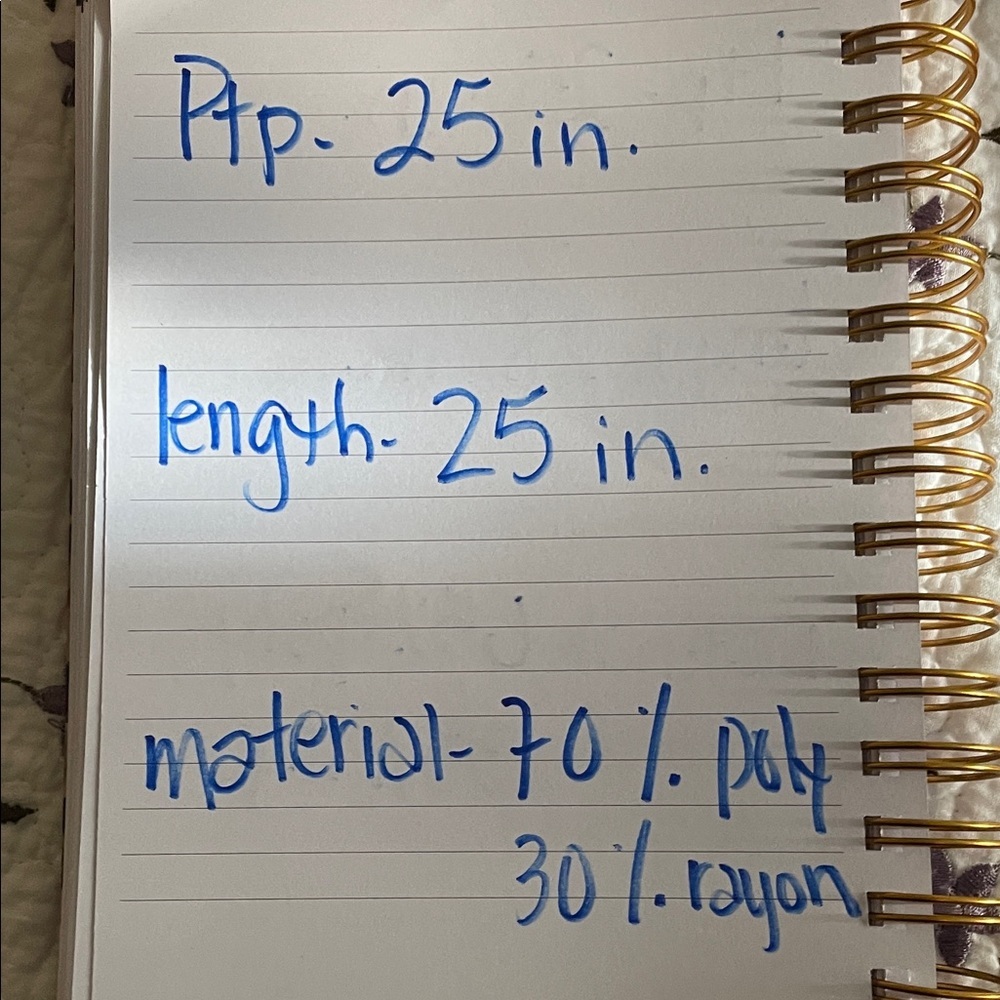 Ptp- 25 in.
length- 25 in.
material- 70% poly
30% rayon